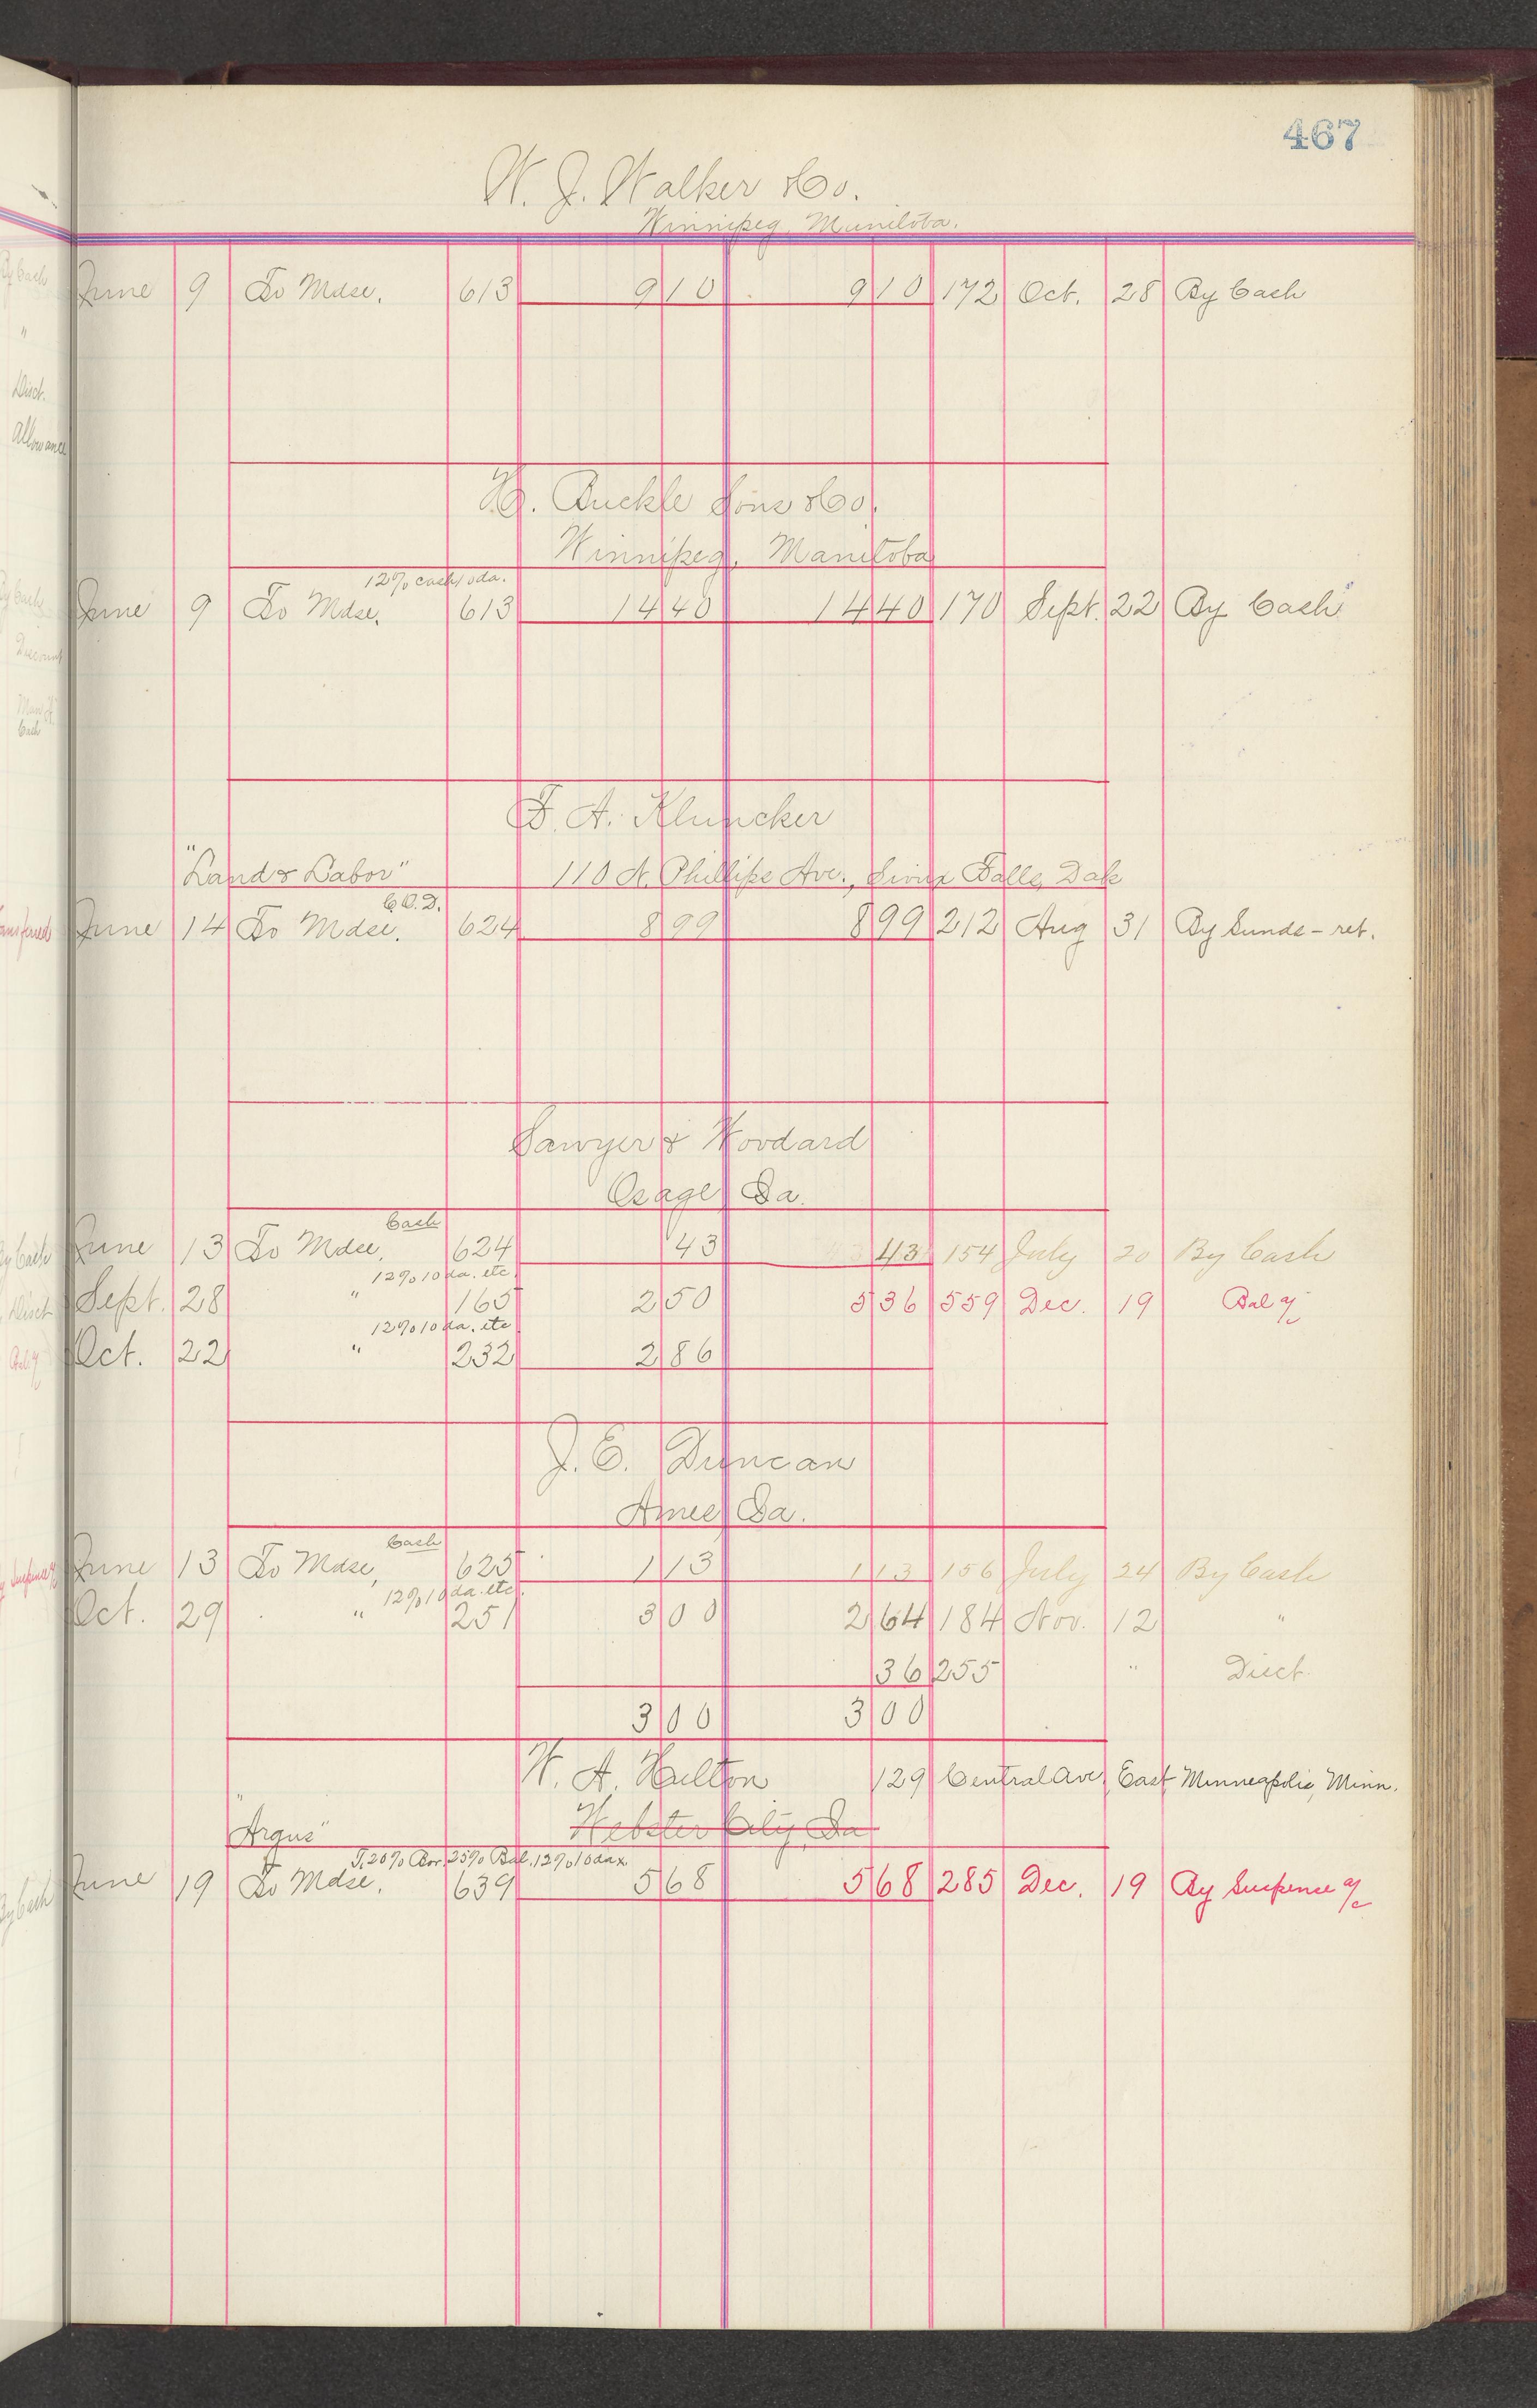 467
W. J. Walker & Co.
Winnipeg, Manitoba.
June 9 To Mdse. 613 9 10 9 10 172 Oct. 28 By Cash
H. Buckle Sons & Co.
Winnipeg, Manitoba
12% cash 10 da.
June 9 To Mdse. 613 14 40 14 40 170 Sept. 22 By Cash
F. A. Kluncker
"Land & Labor" 110 N. Phillips Ave., Sioux Falls, Dak
C.O.D.
June 14 To Mdse. 624 8 99 8 99 212 Aug 31 By Sunds - ret.
Sawyer & Woodard
Osage Ia.
Cash
June 13 To Mdse. 624 43 43 154 July 20 By Cash
12% 10 da. etc.
Sept. 28 " 165 2 50 5 36 559 Dec. 19 Bal a/c
12% 10 da. etc
Oct. 22 " 232 2 86
J. E. Duncan
Ames Ia.
Cash
June 13 To Mdse, 625 1 13 1 13 156 July 24 By Cash
12% 10 da. etc.
Oct. 29 " 251 3 00 2 64 184 Nov. 12 "
36 255 " Disct.
3 00 3 00
W. A. Hulton 129 Central Ave, East Minneapolis, Minn.
Webster City, Ia
"Argus"
20% 25% Bal. 12% 10 dax
June 19 To Mdse. 639 5 68 5 68 285 Dec. 19 By Suspense a/c